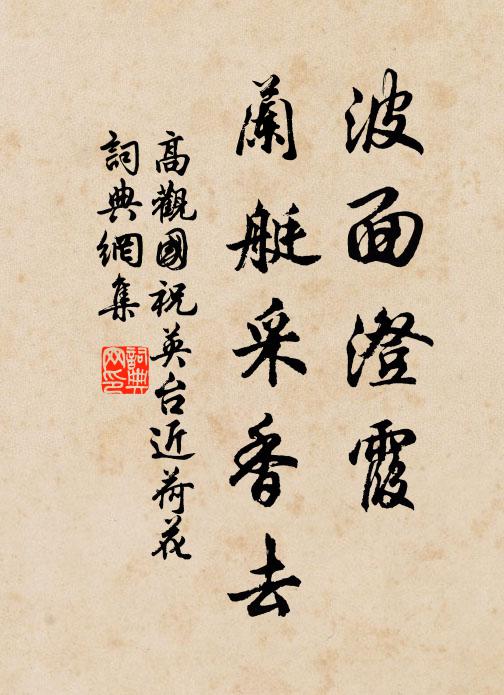 波面澄霞
蘭艇采香去
高觀國祝英台近荷花
詞典網集
詞典
网印